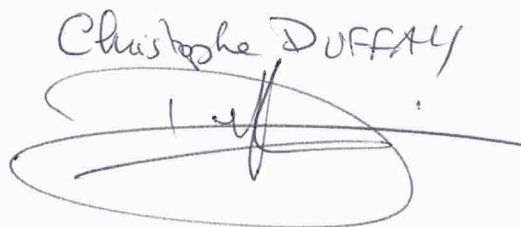 Christophe DUFFAY